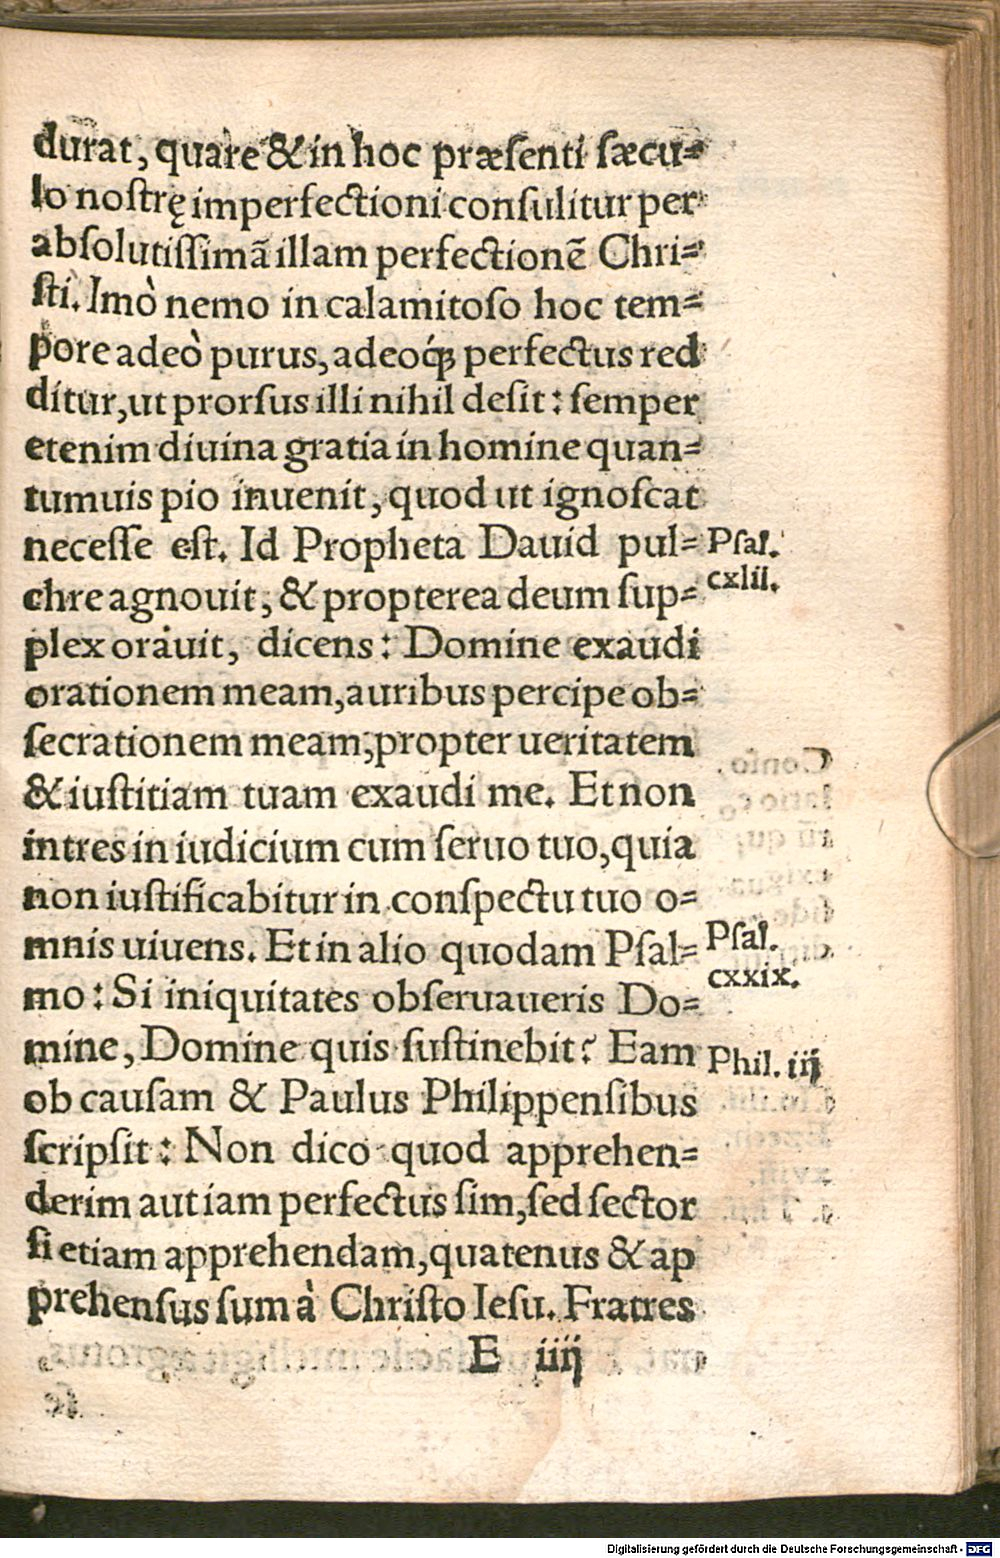 durat, quare & in hoc præſenti ſæcu-
lo noſtrę imperfectioni conſulitur per
abſolutiſſimã illam perfectionẽ Chri-
ſti. Imò nemo in calamitoſo hoc tem-
pore adeò purus, adeoq́; perfectus red
ditur, ut prorſus illi nihil deſit: ſemper
etenim diuina gratia in homine quan-
tumuis pio inuenit, quod ut ignoſcat
neceſſe eſt. Id Propheta Dauid pul- Pſal.
chre agnouit, & propterea deum ſup- cxlii.
plex orauit, dicens: Domine exaudi
orationem meam, auribus percipe ob-
ſecrationem meam, propter ueritatem
& iuſtitiam tuam exaudi me. Et non
intres in iudicium cum ſeruo tuo, quia
non iuſtificabitur in conſpectu tuo o-
mnis uiuens. Et in alio quodam Pſal- Pſal.
mo: Si iniquitates obſeruaueris Do- cxxix.
mine, Domine quis ſuſtinebit? Eam Phil. iij
ob cauſam & Paulus Philippenſibus
ſcripſit: Non dico quod apprehen-
derim aut iam perfectus ſim, ſed ſector
ſi etiam apprehendam, quatenus & ap
prehenſus ſum à Chriſto Ieſu. Fratres
E iiij
Digitalisierung gefördert durch die Deutsche Forschungsgemeinschaft - DFG